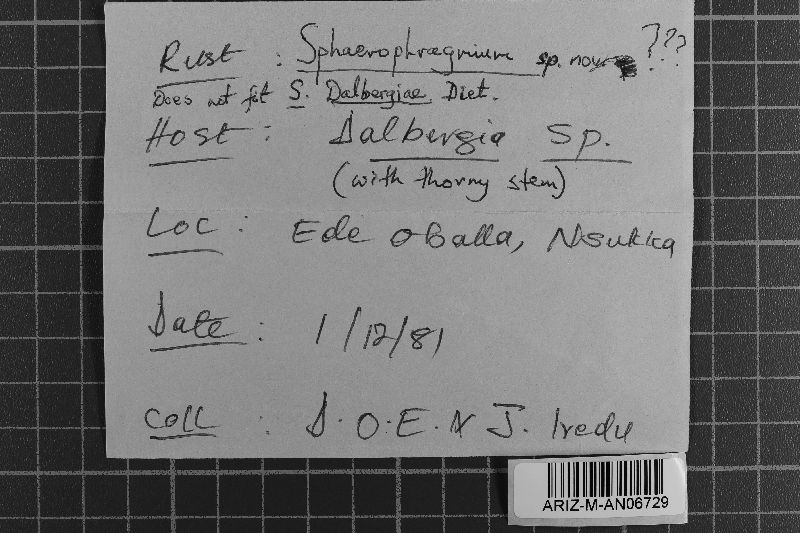 Rust : Sphaerophragmium sp. nov. ???
Does not fit S. Dalbergiae Diet.
Host : Dalbergia sp.
(with thorny stem)
Loc : Ede Oballa, Nsukka
Date : 1/12/81
Coll : D.O.E. & J. Iredu
ARIZ-M-AN06729